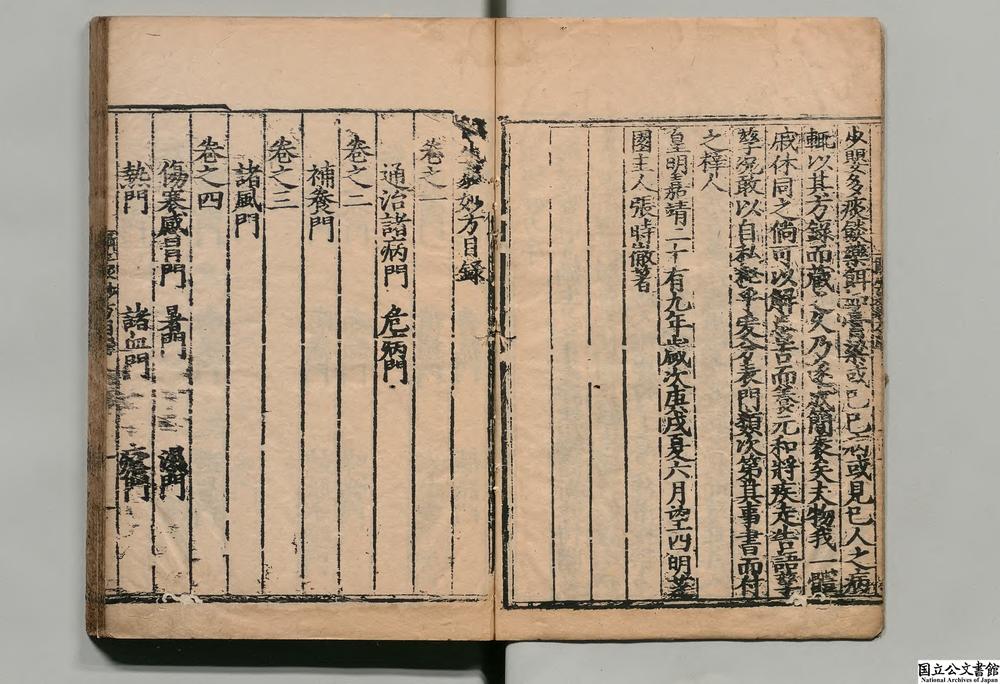 少嬰多疾餌藥餌□□□或已巳病或見巳人之病
輒以其方錄而藏之久乃多次簡袠矣夫物我一體
戚休同之倘可以解□苦而養元和將疾走告語孳
孳宛敢以自私□乎爰分表門類次第其事書而付
之梓人
皇明嘉靖二十有九年歲次庚戌夏六月望四明芝
園主人張時徹著
妙方目錄
卷之一
通治諸病門 危病門
卷之二
補養門
卷之三
諸風門
卷之四
傷寒感冒門 暑門 濕門
熱門 諸血門 瘧門
国立公文書館
National Archives of Japan